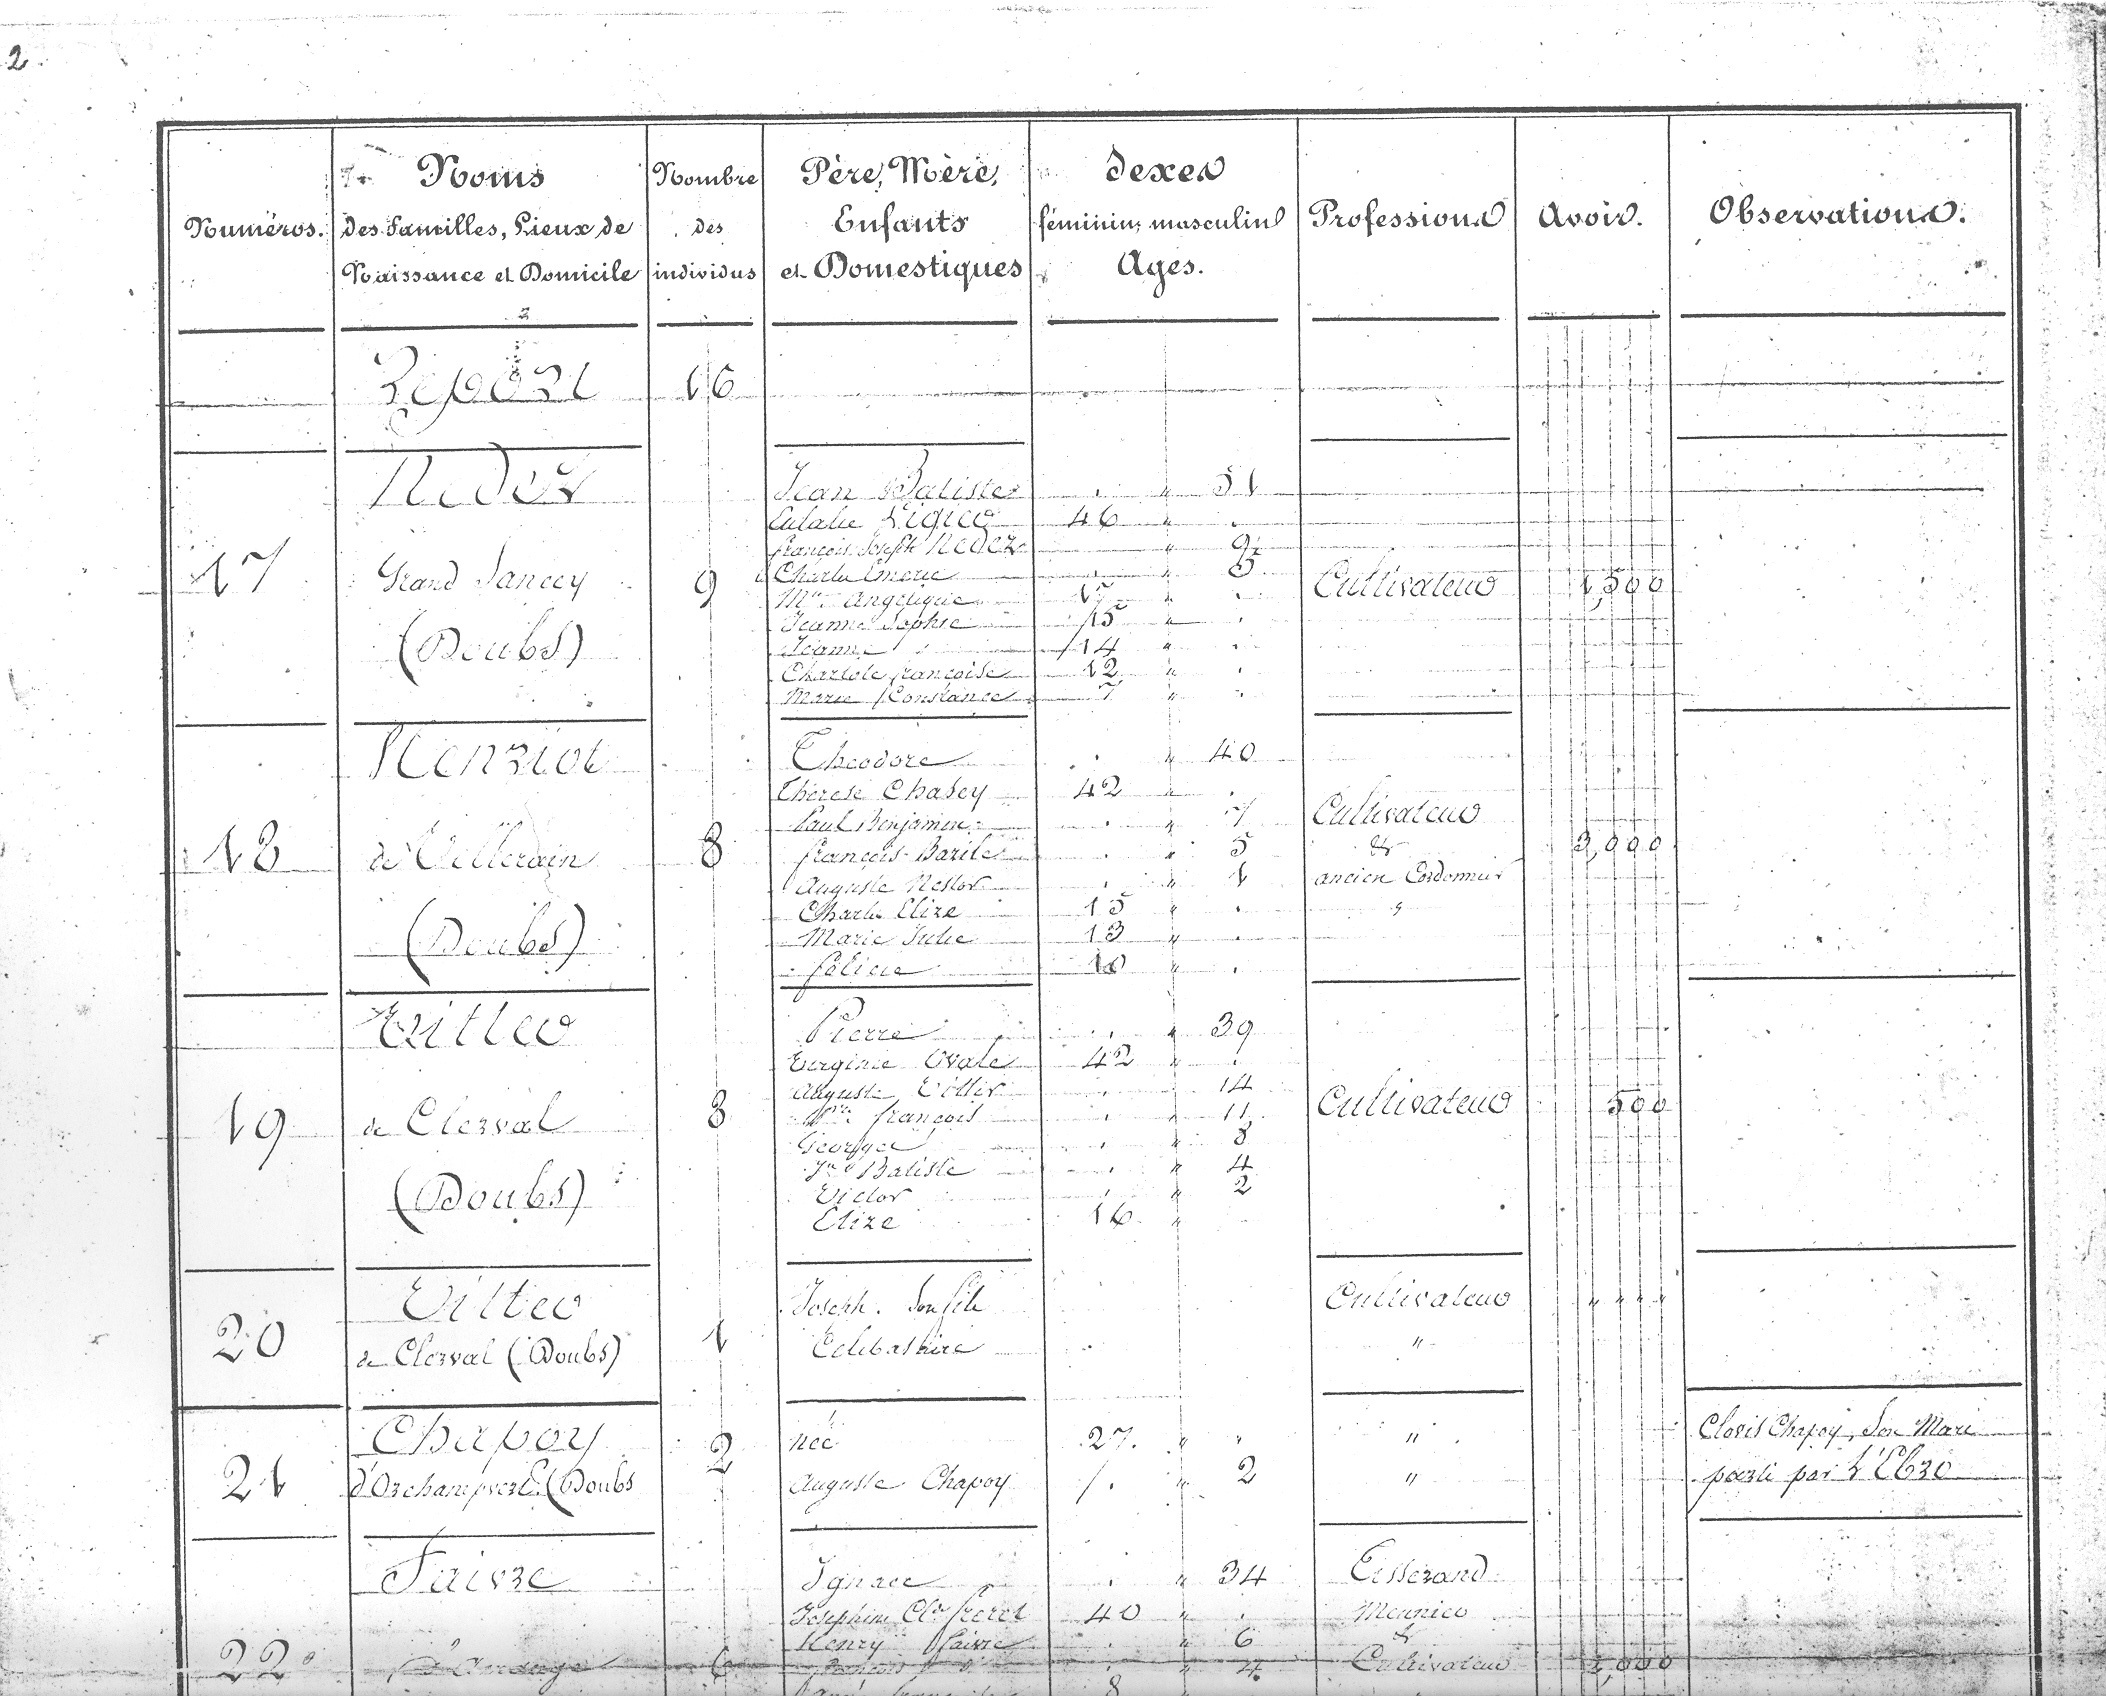 2
Numéros.
Noms
des Familles, Lieux de
Naissance et Domicile
Nombre
des
individus
Père, Mère,
Enfants
et Domestiques
Sexes
féminin, masculin
Ages.
Professions
Avoir.
Observations.
Report 16
17
Neder
Grand Sancey
(Doubs)
9
Jean Batiste " 51
Eulalie 46 "
François Joseph Neder " 9
Charles Emeric " 5
Mie Angelique 17 "
Jeanne Sophie 15 "
Jeanne 14 "
Charlote françoise 12 "
Marie Constance 7 "
Cultivateur
1,500
18
Henriot
de
(Doubs)
8
Theodore " 40
Therese Chabey 42 "
Paul Benjamin " 7
françois Bazile " 5
Auguste Nestor " 1
Charle Elize 15 "
Marie Julie 13 "
felicie 10 "
Cultivateur
&
ancien Cordonnier
"
3,000
19
de Clerval
(Doubs)
8
Pierre " 39
Virginie 42 "
Auguste 14
françois 11
George " 8
Jn Batiste " 4
Victor " 2
Elize 16 "
Cultivateur
500
20
de Clerval (Doubs)
1
Joseph. Son fils
Celibathire
Cultivateur
"
" " " "
21
Chapoy
(Doubs
2
née 27. " "
Auguste Chapoy " 2
"
"
Clovis Chapoy, Son Mari
parti par l'Ebro
22
Faivre
6
Ignace " 34
Josephine 40 "
Henry faivre " 6
françois " 4
8
Tisserand
Meunier
&
Cultivateur